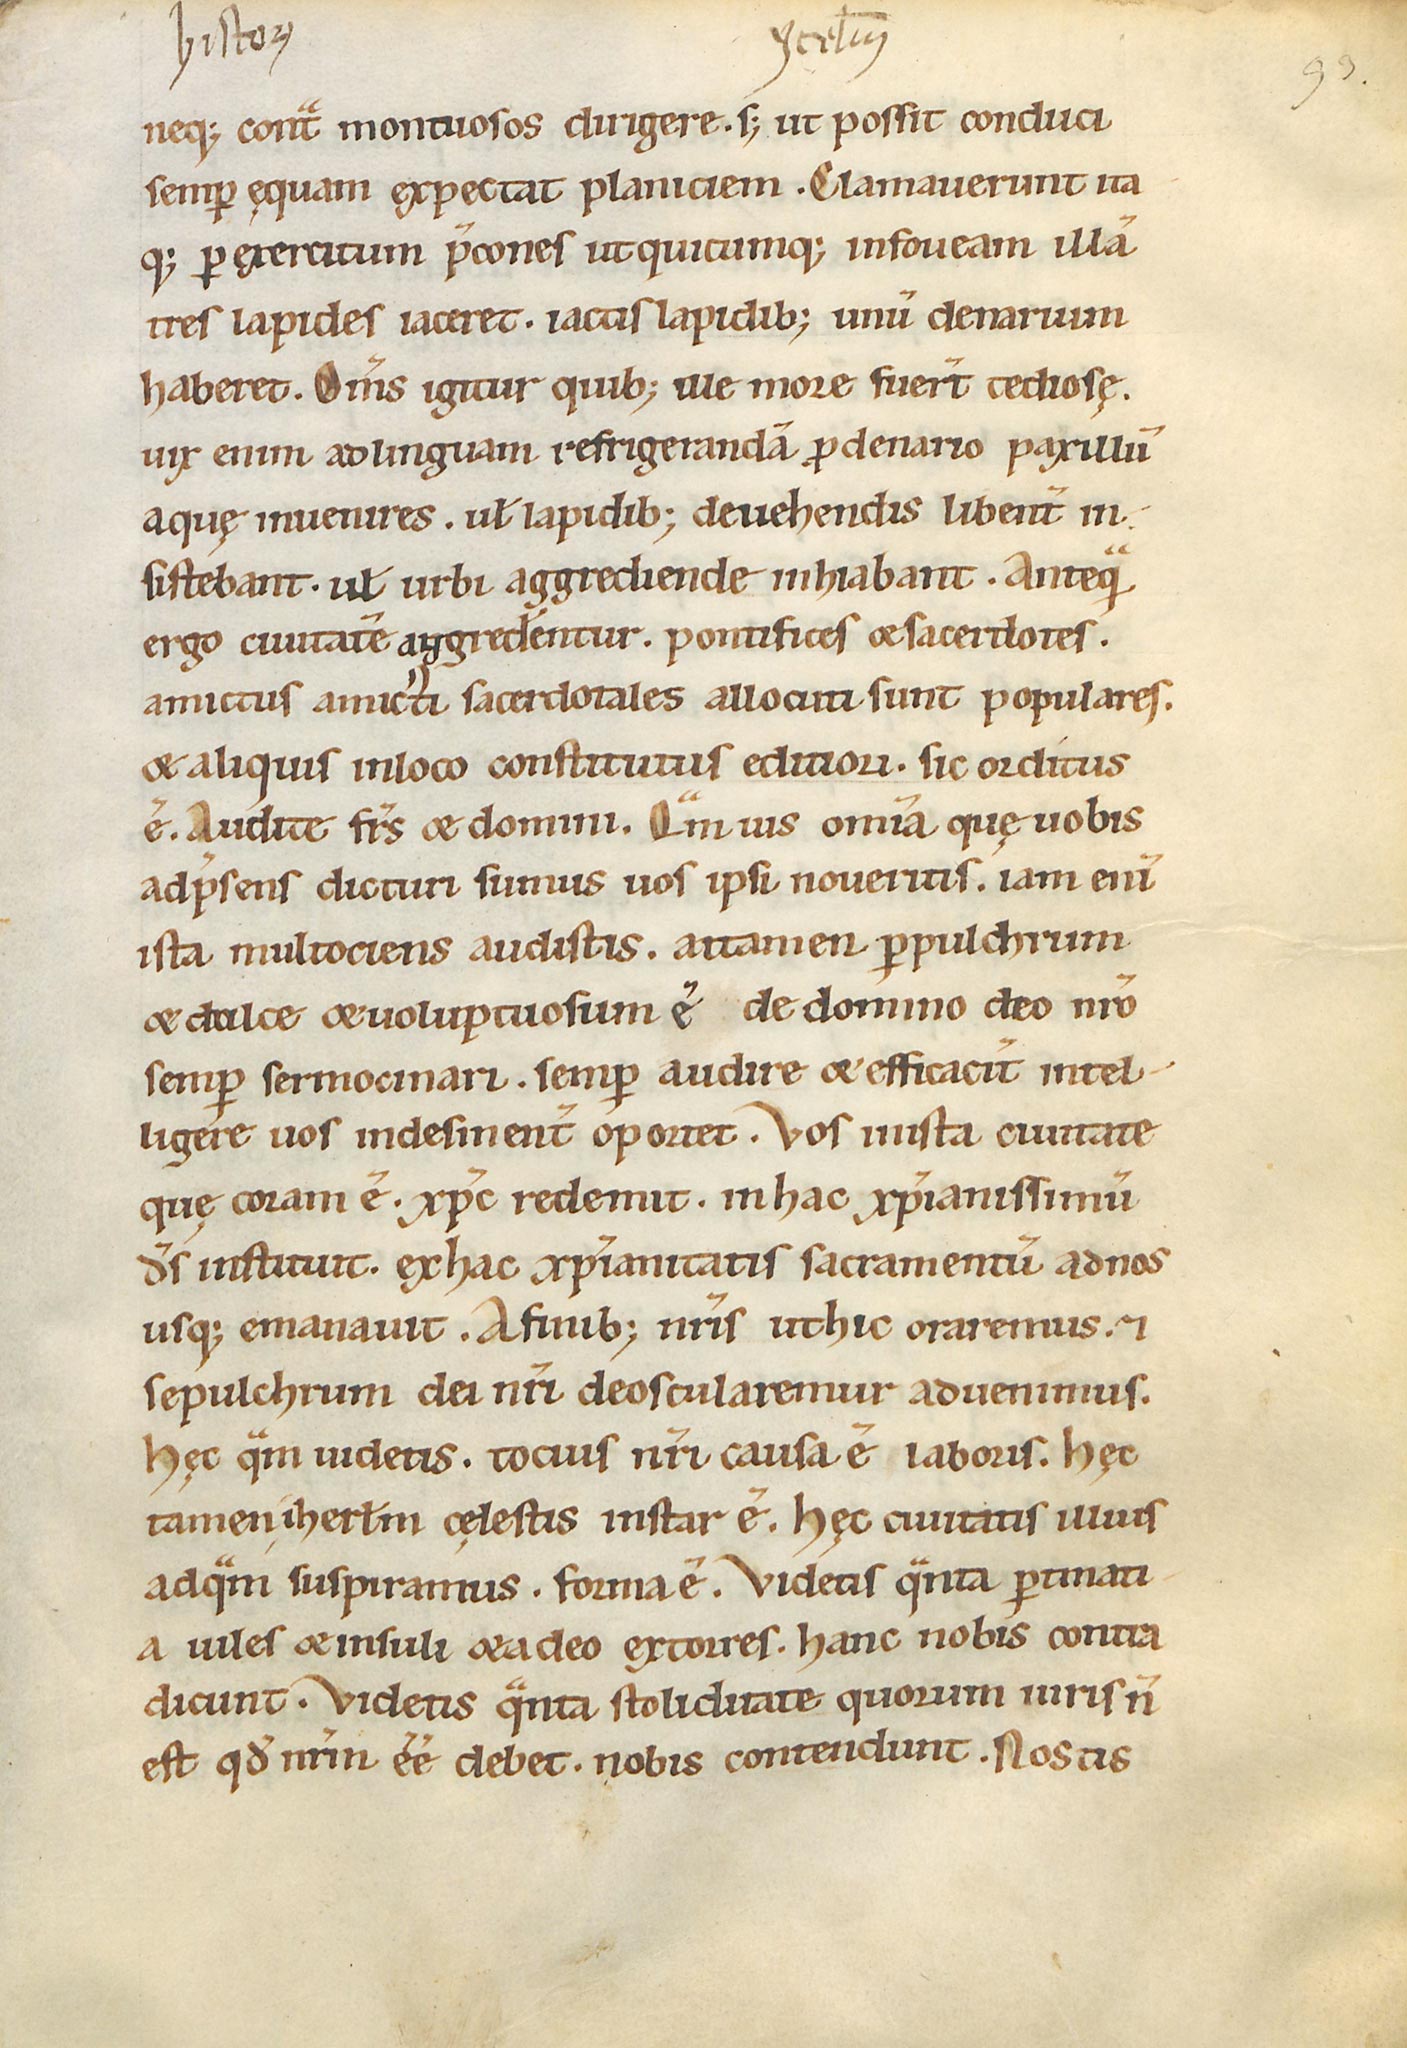 histor ycrłm
93.
neq; cont̄ montuosos dirigere. s; ut possit conduci
semꝑ ęquam expectat planiciem. Clamauerunt ita
q; ꝑ exercitum p̄cones ut quicumq; infoueam illā
tres lapides iaceret. iactis lapidib; unū denarium
haberet. Om̄s igitur quib; ille more fuer̄t tediosę.
uix enim adlinguam refrigerandā ꝓdenario paxillū
aquę inuenires. uł lapidib; deuehendis libent̄ in-
sistebant. uł urbi aggrediende inhiabant. Anteq̄
ergo ciuitatē aggrederentur. pontifices & sacerdotes.
amictus amicti sacerdotales allocuti sunt populares.
& aliquis inloco constitutus editiori. sic orditus
ē. Audite fr̄s & domini. Q̄muis om̄ia quę uobis
adp̄sens dicturi sumus uos ipsi noueritis. iam enī
ista multociens audistis. attamen ꝑpulchrum
& dulce & uoluptuosum ē de domino deo nr̄o
semꝑ sermocinari. semꝑ audire & efficacit̄ intel-
ligere uos indesinent̄ oportet. Vos inista ciuitate
quę coram ē. xp̄c redemit. inhac xp̄ianissimū
d̄s instituit. exhac xp̄ianitatis sacramentū adnos
usq; emanauit. Afinib; nr̄is uthic oraremus. ⁊
sepulchrum dei nr̄i deoscularemur aduenimus.
hęc q̄m uidetis. tocius nr̄i causa ē laboris. hęc
tamen iherłm cęlestis instar ē. hęc ciuitatis illius
adq̄m suspiramus. forma ē. Videtis q̄nta ꝑtinati-
a uiles & insuli & adeo extorres. hanc nobis contra
dicunt. Videtis q̄nta stoliditate quorum iuris n̄
est qd̄ nr̄m ēē debet. nobis contendunt. Nostis